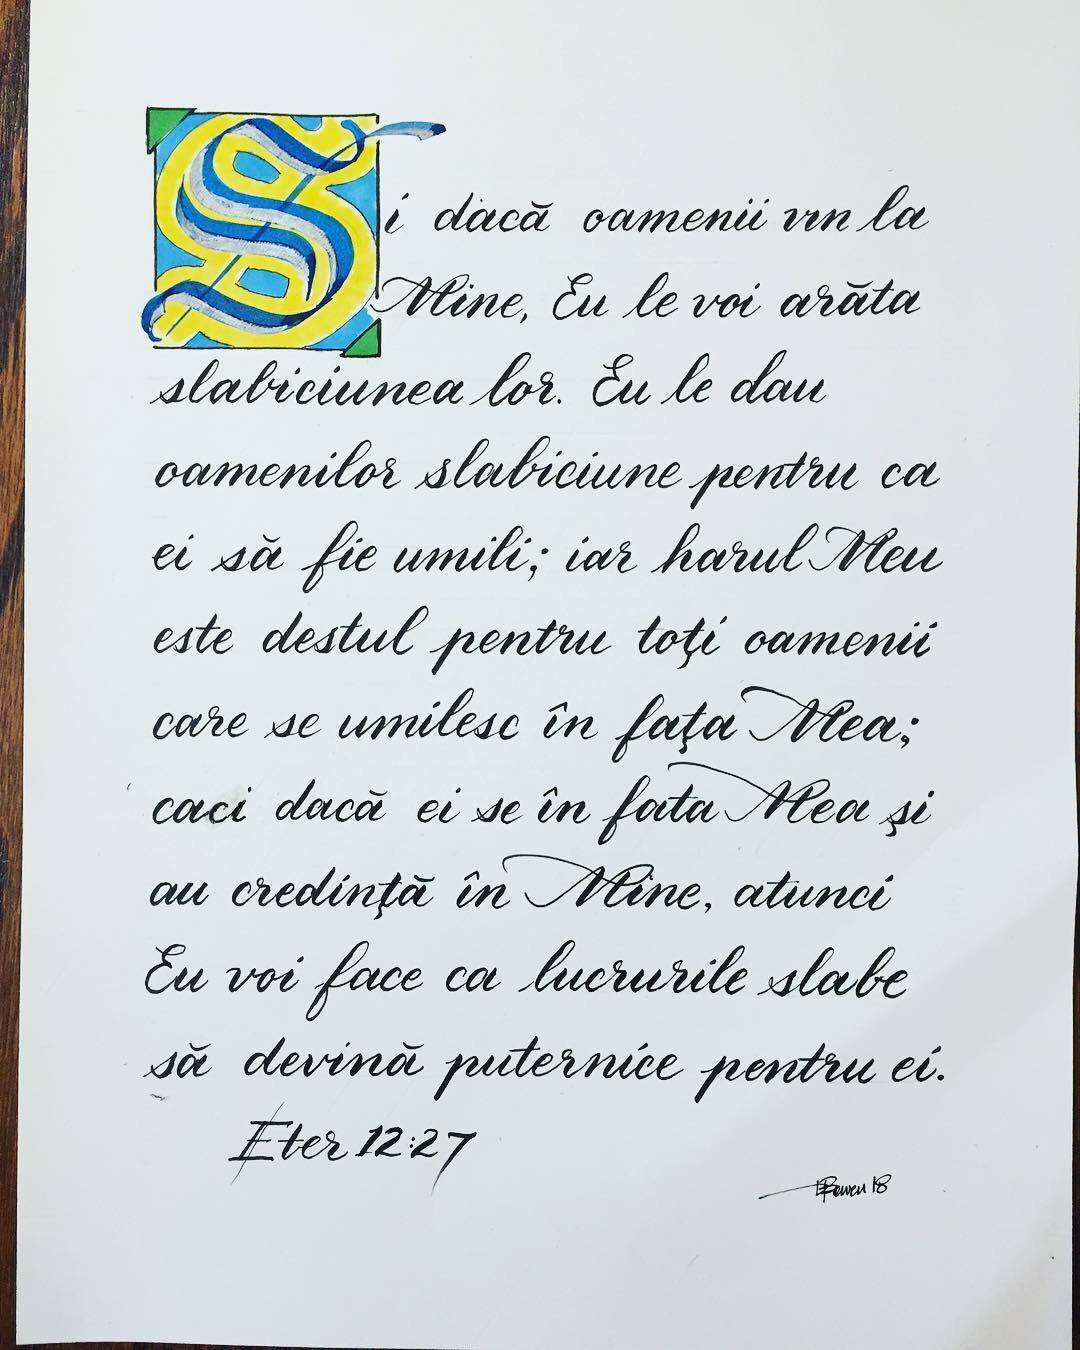 Si dacă oamenii vin la
Mine, Eu le voi arăta
slabiciunea lor. Eu le dau
oamenilor slabiciune pentru ca
ei să fie umili; iar harul Meu
este destul pentru toţi oamenii
care se umilesc în faţa Mea;
caci dacă ei se în fata Mea şi
au credinţă în Mine, atunci
Eu voi face ca lucrurile slabe
să devină puternice pentru ei.
Eter 12:27
Bowen 18